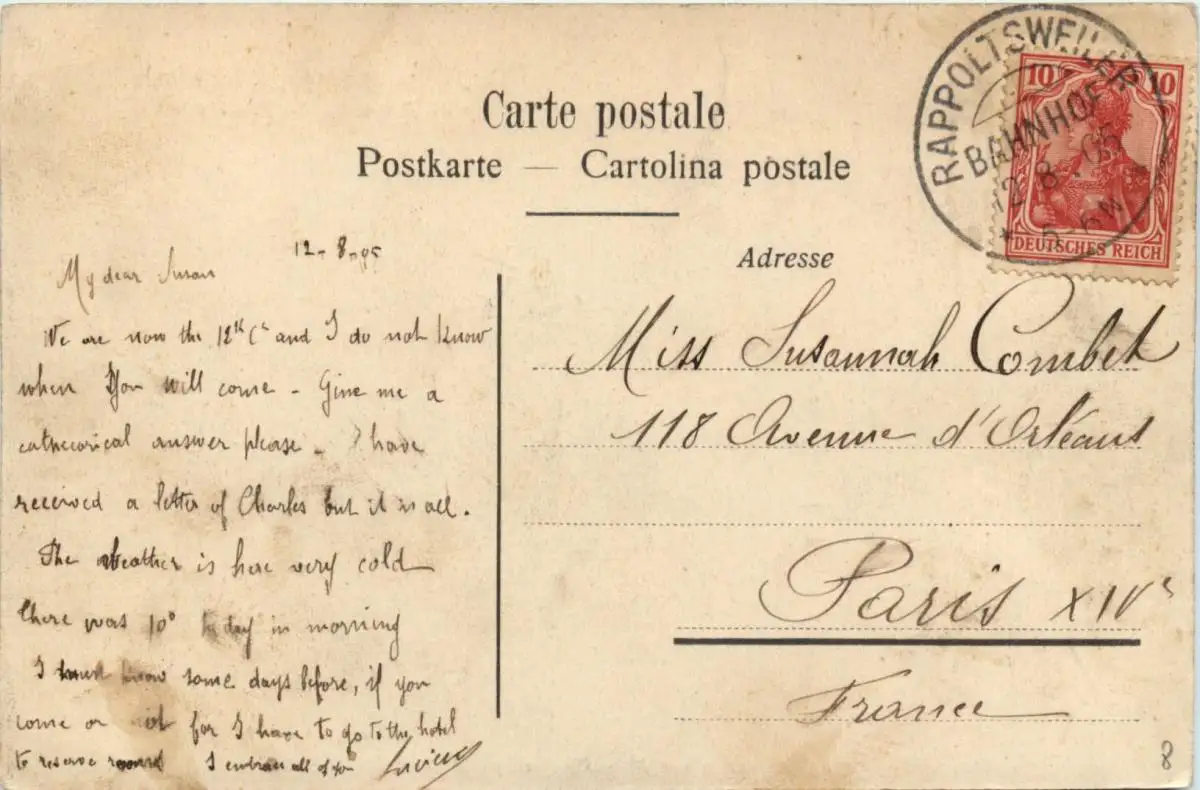 Carte postale
Postkarte — Cartolina postale
RAPPOLTSWEILER
BAHNHOF
12 8 05
* 5-6N
10 10
DEUTSCHES REICH
Adresse
Miss Susannah Combet
118 Avenue d'Orléans
Paris XIVe
France
12-8-05
My dear Susan
We are now the 12th and I do not know
when you will come - Give me a
cathecorical answer please - I have
received a letter of Charles but it is all.
The weather is here very cold
there was 10° today in morning
I must know some days before, if you
come or not for I have to go to the hotel
to reserve rooms I embrace all of you Lucien
8